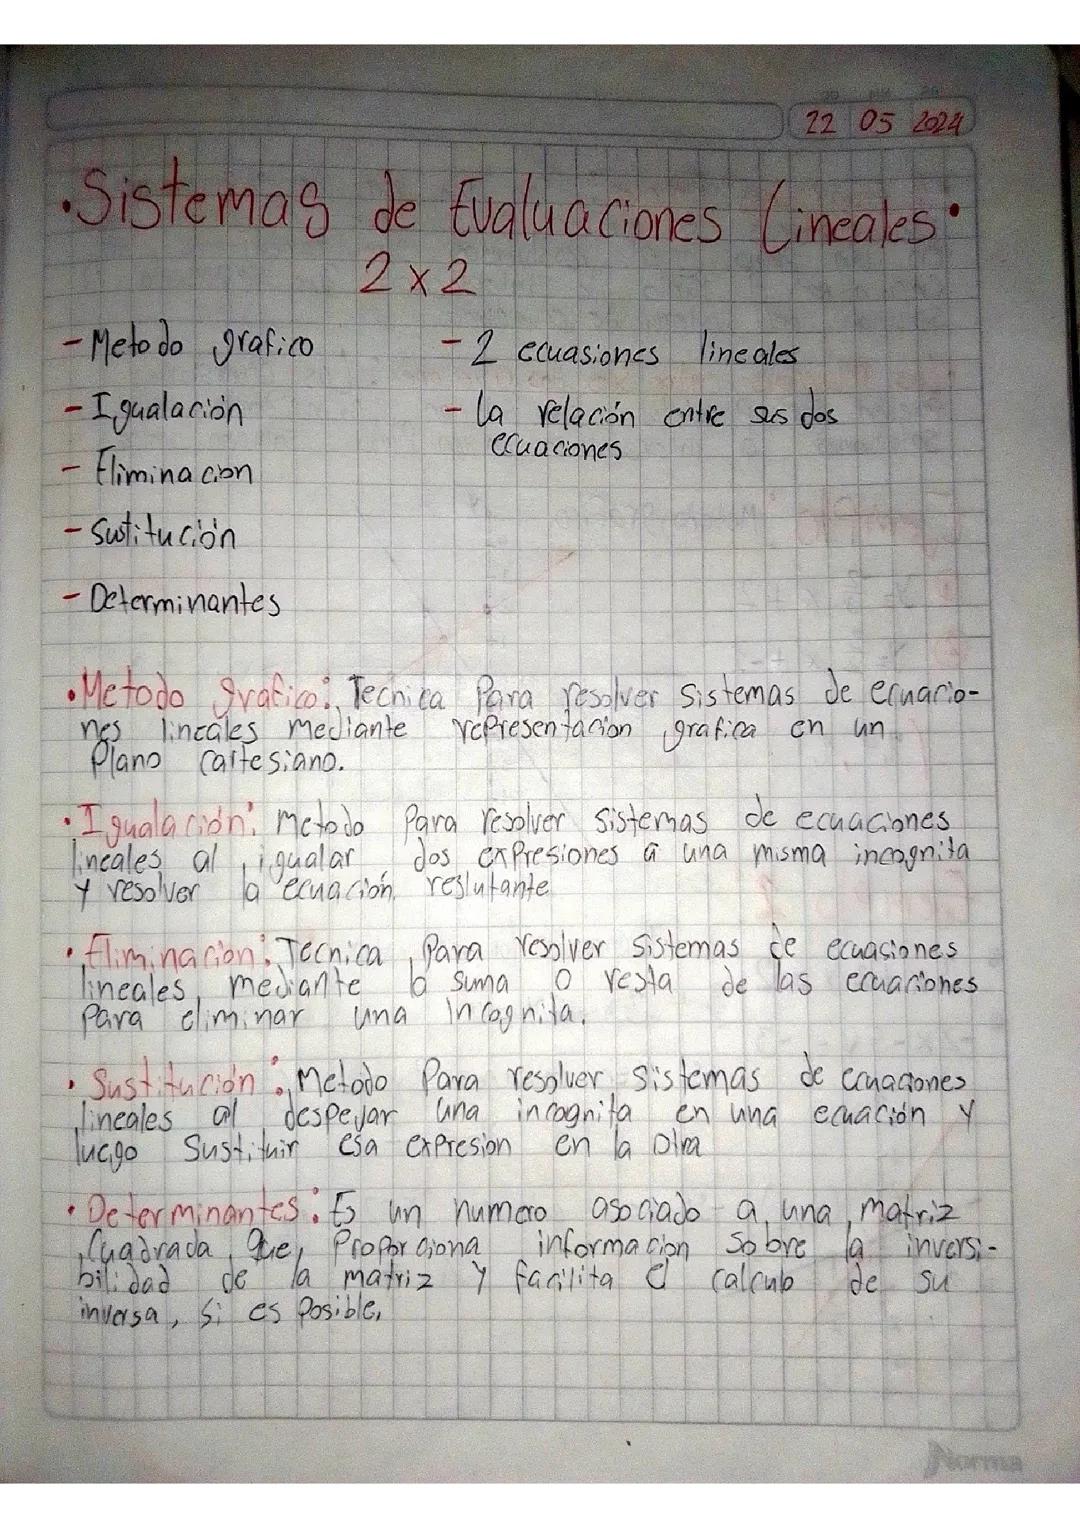 22 05 2024
• Sistemas de Evaluaciones Lineales •
2 x 2
- Metodo grafico
- Igualación
- Eliminacion
- Sustitución
- Determinantes
- 2 ecuasiones lineales
- la relación entre sus dos
ecuaciones
• Metodo grafico: Tecnica Para resolver sistemas de ecuacio-
nes lineales mediante representacion grafica en un
Plano cartesiano.
• Igualación: Metodo Para resolver sistemas de ecuaciones
lineales al igualar dos exPresiones a una misma incognita
y resolver la ecuación reslutante
• Eliminacion: Tecnica Para resolver sistemas de ecuasiones
lineales, mediante la suma o resta de las ecuaciones
Para eliminar una incognita.
• Sustitución: Metodo Para resolver sistemas de ecuaciones
lineales al despejar una incognita en una ecuación y
luego Sustituir esa exPresion en la otra
• Determinantes: Es un numero asociado a una matriz
Cuadrada, que, ProPorciona informacion sobre la inversi-
bilidad de la matriz y facilita el calculo de su
inversa, si es Posible.
Norma